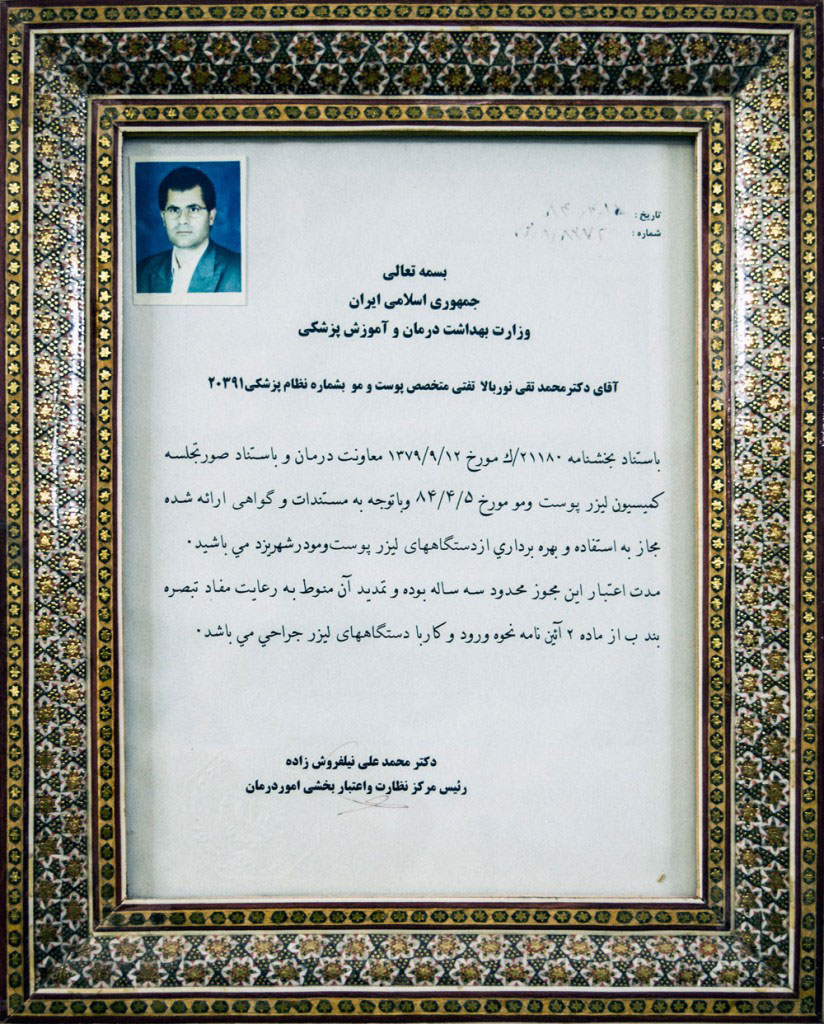 تاریخ :
شماره :
بسمه تعالی
جمهوری اسلامی ایران
وزارت بهداشت درمان و آموزش پزشکی
آقای دکترمحمد تقی نوربالا تفتی متخصص پوست و مو بشماره نظام پزشکی۲۰۳۹۱
باستناد بخشنامه ۲۱۱۸۰/ك مورخ ۱۳۷۹/۹/۱۲ معاونت درمان و باستناد صورتجلسه
کمیسیون لیزر پوست ومو مورخ ۸۴/۴/۵ وباتوجه به مستندات و گواهی ارائه شده
مجاز به استفاده و بهره برداري ازدستگاههای لیزر پوست‌ومودرشهریزد مي باشید.
مدت اعتبار این مجوز محدود سه ساله بوده و تمدید آن منوط به رعایت مفاد تبصره
بند ب از ماده ۲ آئین نامه نحوه ورود و کاربا دستگاههای لیزر جراحي مي باشد.
دکتر محمد علی نیلفروش زاده
رئیس مرکز نظارت واعتبار بخشی اموردرمان